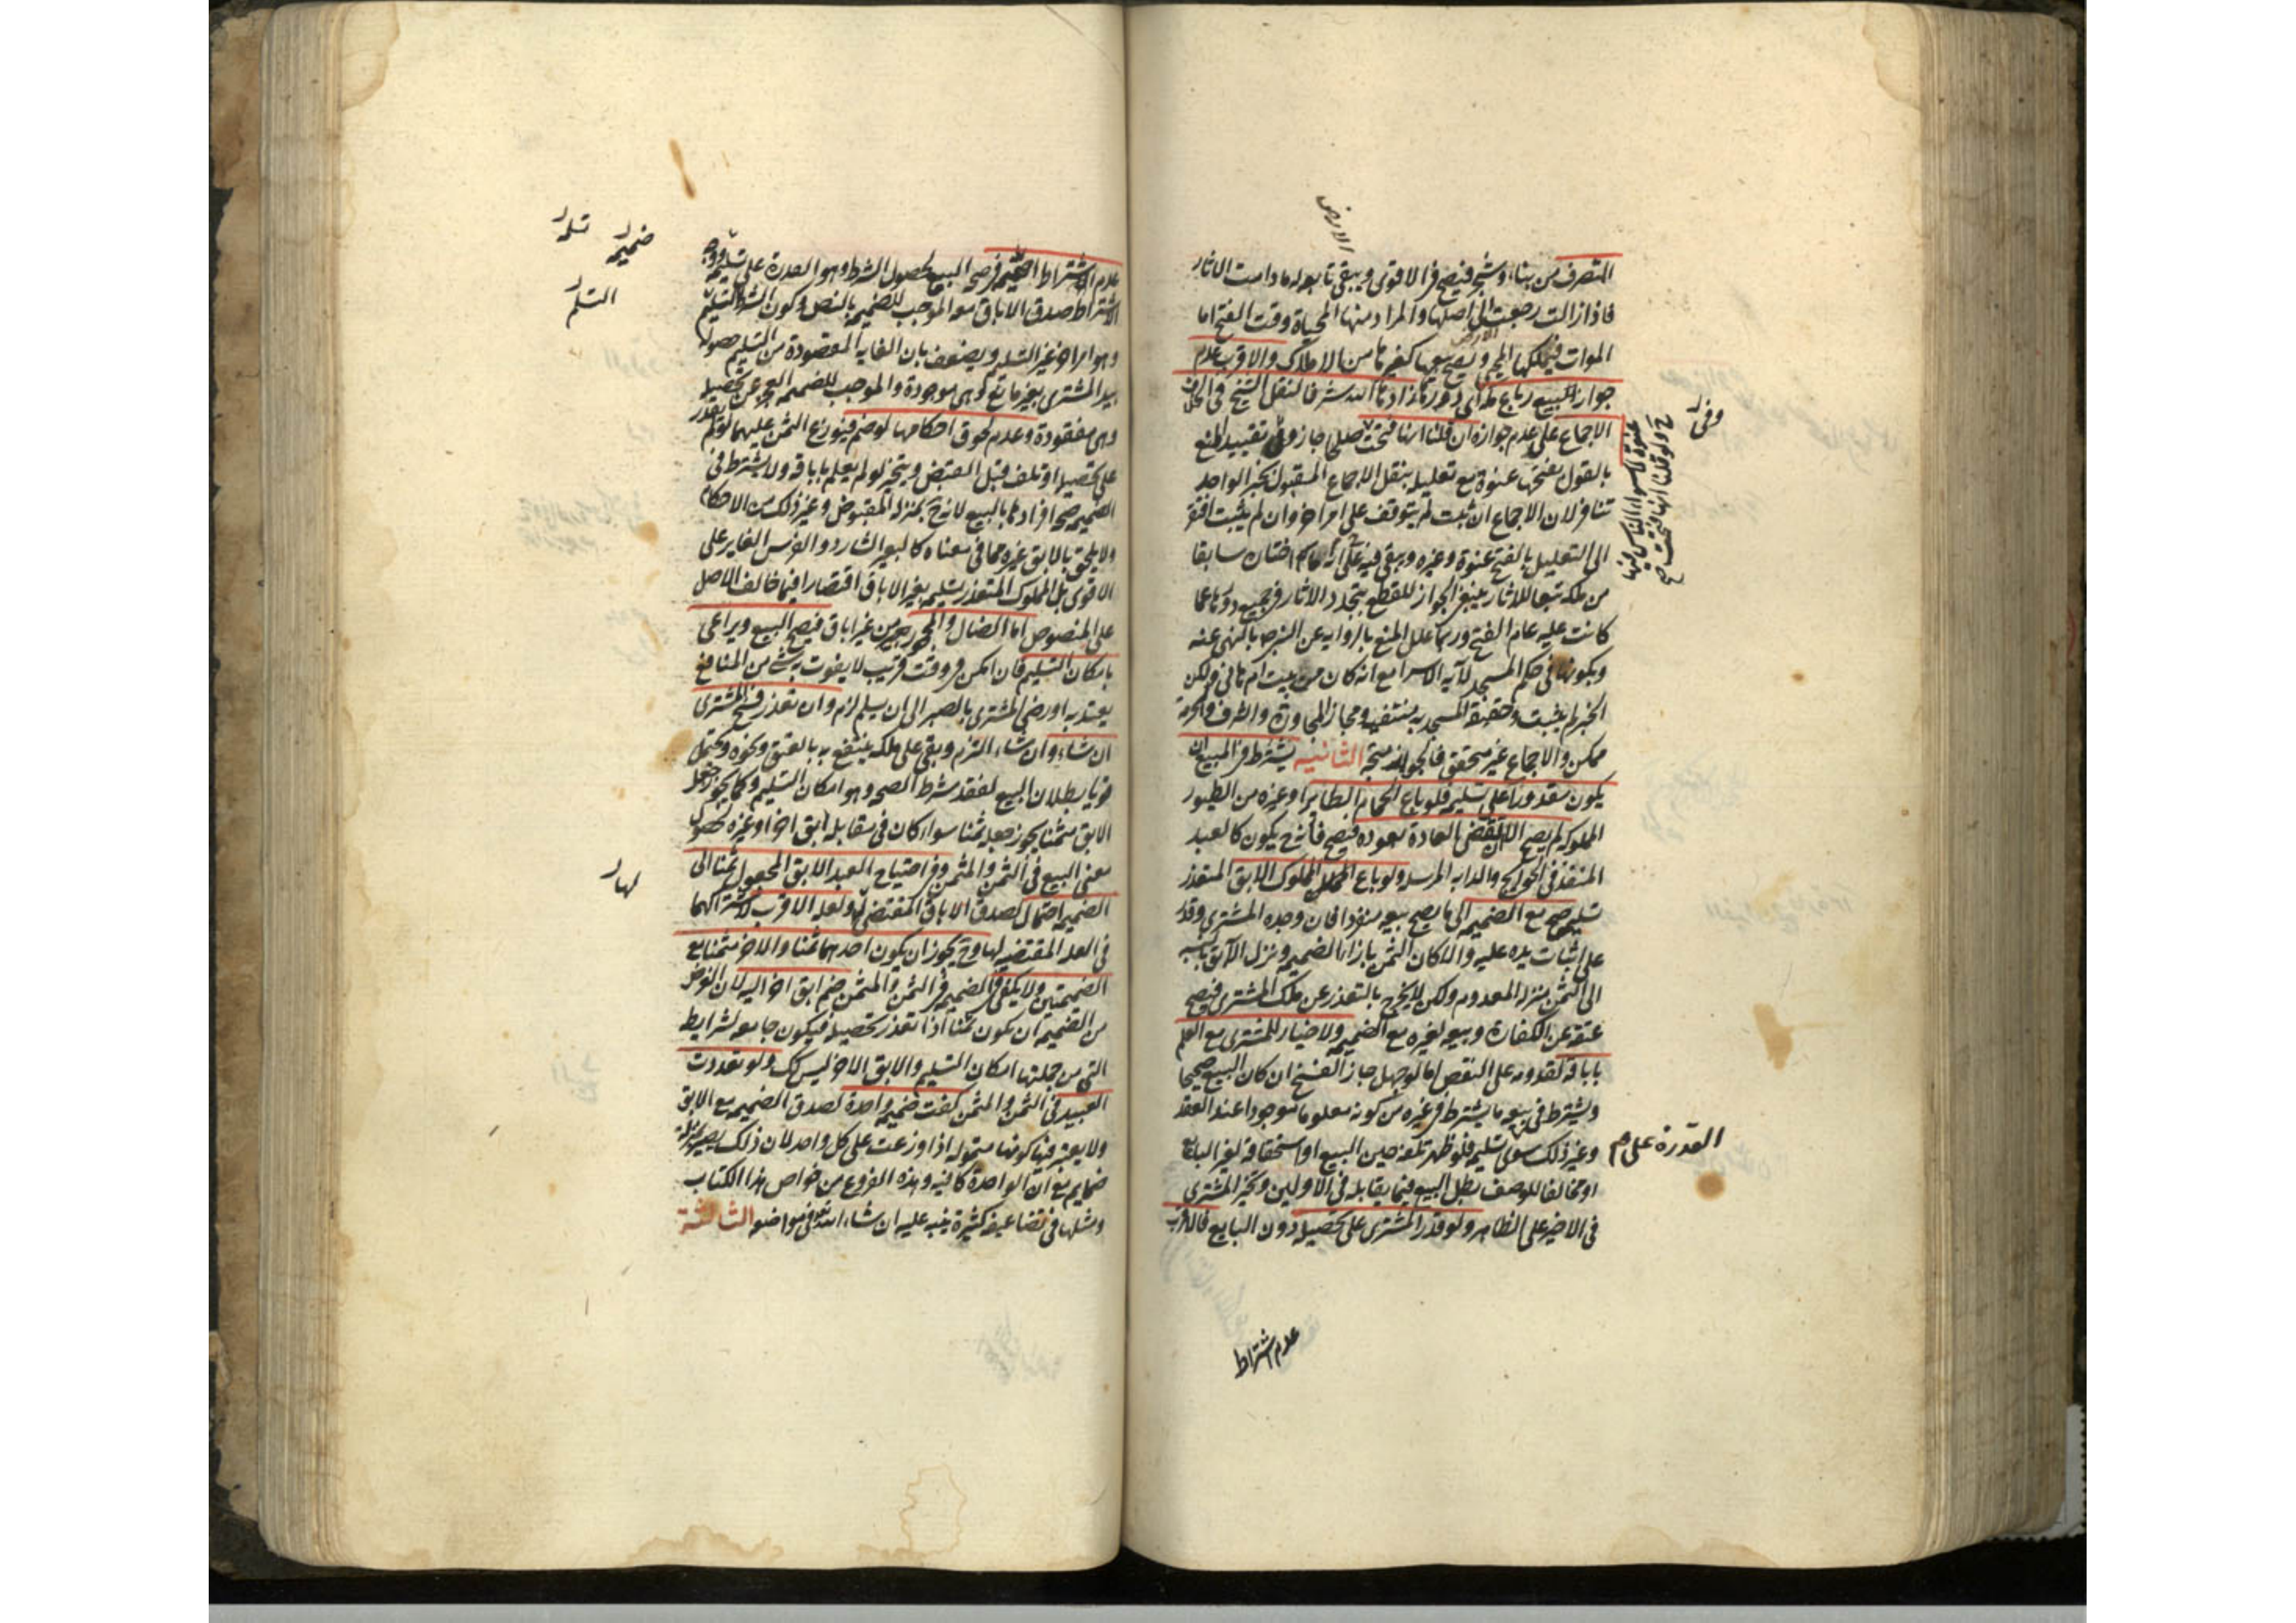 الارض
المتصرف من بناء وشجر فيصح في الاقوى ويبقى تابعا له ما دامت الاثار
فاذا زالت رجعت الى اصلها والمراد منها المحياة وقت الفتح اما
الموات فيملكها المحيي ويصح بيعها كغيرها من الاملاك والاقرب عدم
جواز بيع رباع مكة اي دورها زادها الله شرفا لنقل الشيخ في الخلاف
الاجماع على عدم جوازه ان قلنا انها فتحت صلحا جاز وفي تقييد المنع
بالقول بفتحها عنوة مع تعليله بنقل الاجماع المنقول بخبر الواحد
تنافر لان الاجماع ان ثبت لم يتوقف على امر اخر وان لم يثبت افتقر
الى التعليل بالفتح عنوة وغيره ويبقى فيه انه على ما اختاره سابقا
من ملكه تبعا للاثار ينبغي الجواز للقطع بتجدد الاثار في جميع دورها عما
كانت عليه عام الفتح وربما علل المنع بالرواية عن النبي ص بالنهي عنه
وبكونها في حكم المسجد لآية الاسرا مع انه كان من بيت ام هاني ولكن
الخبر لم يثبت وحقيقة المسجدية منتفية ومجاز المجاورة والشرف والحرمة
ممكن والاجماع غير متحقق فالجواز متجه الثانية يشترط في المبيع ان
يكون مقدورا على تسليمه فلو باع الحمام الطاير او غيره من الطيور
المملوكة لم يصح الا ان تقضي العادة بعوده فيصح لانه ح يكون كالعبد
المنفذ في الحوايج والدابة المرسلة ولو باع المملوك الابق المتعذر
تسليمه صح مع الضميمة الى ما يصح بيعه منفردا فان وجده المشتري وقدر
على اثبات يده عليه والا كان الثمن بازاء الضميمة ونزل الآبق بالنسبة
الى الثمن منزلة المعدوم ولكن لا يخرج بالتعذر عن ملك المشتري فيصح
عتقه عن الكفارة وبيعه لغيره مع الضميمة ولا خيار للمشتري مع العلم
باباقه لقدومه على النقص اما لو جهل جاز الفسخ ان كان البيع صحيحا
ويشترط في بيعه ما يشترط في غيره من كونه معلوما موجودا عند العقد
وغير ذلك سوى تسليمه فلو ظهر تلفه حين البيع او استحقاقه لغير البايع
القدرة على م
او مخالفا للوصف بطل البيع فيما يقابله في الاولين وتخير المشتري
في الاخير على الظاهر ولو قدر المشتري على تحصيله دون البايع فالاقرب
عدم اشتراط
عدم اشتراط الضميمة في صحة البيع لحصول الشرط وهو القدرة على تسلمه ووجه
الاشتراط صدق الاباق معه الموجب للضميمة بالنص وكون الشرط التسليم
وهو امر اخر غير التسلم ويضعف بان الغاية المقصودة من التسليم حصوله
بيد المشتري بغير مانع وهي موجودة والموجب للضميمة العجز عن تحصيله
وهي مفقودة وعدم لحوق احكامها لو ضم فيوزع الثمن عليهما لو لم يقدر
على تحصيله او تلف قبل القبض ويتخير لو لم يعلم باباقه ولا يشترط في
الضميمة صحة افرادها بالبيع لانه ح بمنزلة المقبوض وغير ذلك من الاحكام
ولا يلحق بالابق غيره مما في معناه كالبعير الشارد والفرس الغاير على
الاقوى بل المملوك المتعذر تسليمه بغير الاباق اقتصارا فيما خالف الاصل
على المنصوص اما الضال والمجحود من غير اباق فيصح البيع ويراعى
بامكان التسليم فان امكن في وقت قريب لا يفوت به شيء من المنافع
يعتد به او رضي المشتري بالصبر الى ان يسلم لزم وان تعذر فسخ المشتري
ان شاء وان شاء التزم وبقي على ملكه ينتفع به بالعتق ونحوه ويحتمل
قويا بطلان البيع لفقد شرط الصحة وهو امكان التسليم وكما يجوز جعل
الابق مثمنا يجوز جعله ثمنا سواء كان في مقابله ابق اخر او غيره لحصول
معنى البيع في الثمن والمثمن وفي احتياج العبد الابق المجعول ثمنا الى
الضميمة احتمال لصدق الاباق المقتضي لها ولعله الاقرب لاشتراكهما
في العلة المقتضية لها وح يجوز ان يكون احدهما ثمنا والاخر مثمنا مع
الضميمتين ولا يكفي في الضميمة في الثمن والمثمن ضم ابق اخر اليه لان الغرض
من الضميمة ان يكون ثمنا اذا تعذر تحصيله فيكون جامعة لشرايطه
التي من جملتها امكان التسليم والابق الاخر ليس كك ولو تعددت
العبيد في الثمن والمثمن كفت ضميمة واحدة لصدق الضميمة مع الابق
ولا يعتبر فيها كونها متمولة اذا وزعت على كل واحد لان ذلك يصير بمنزلة
ضمايم مع ان الواحدة كافية وهذه الفروع من خواص هذا الكتاب
ومثلها في تضاعيفه كثيرة ينبه عليه ان شاء الله تعالى في مواضعه الثالثة